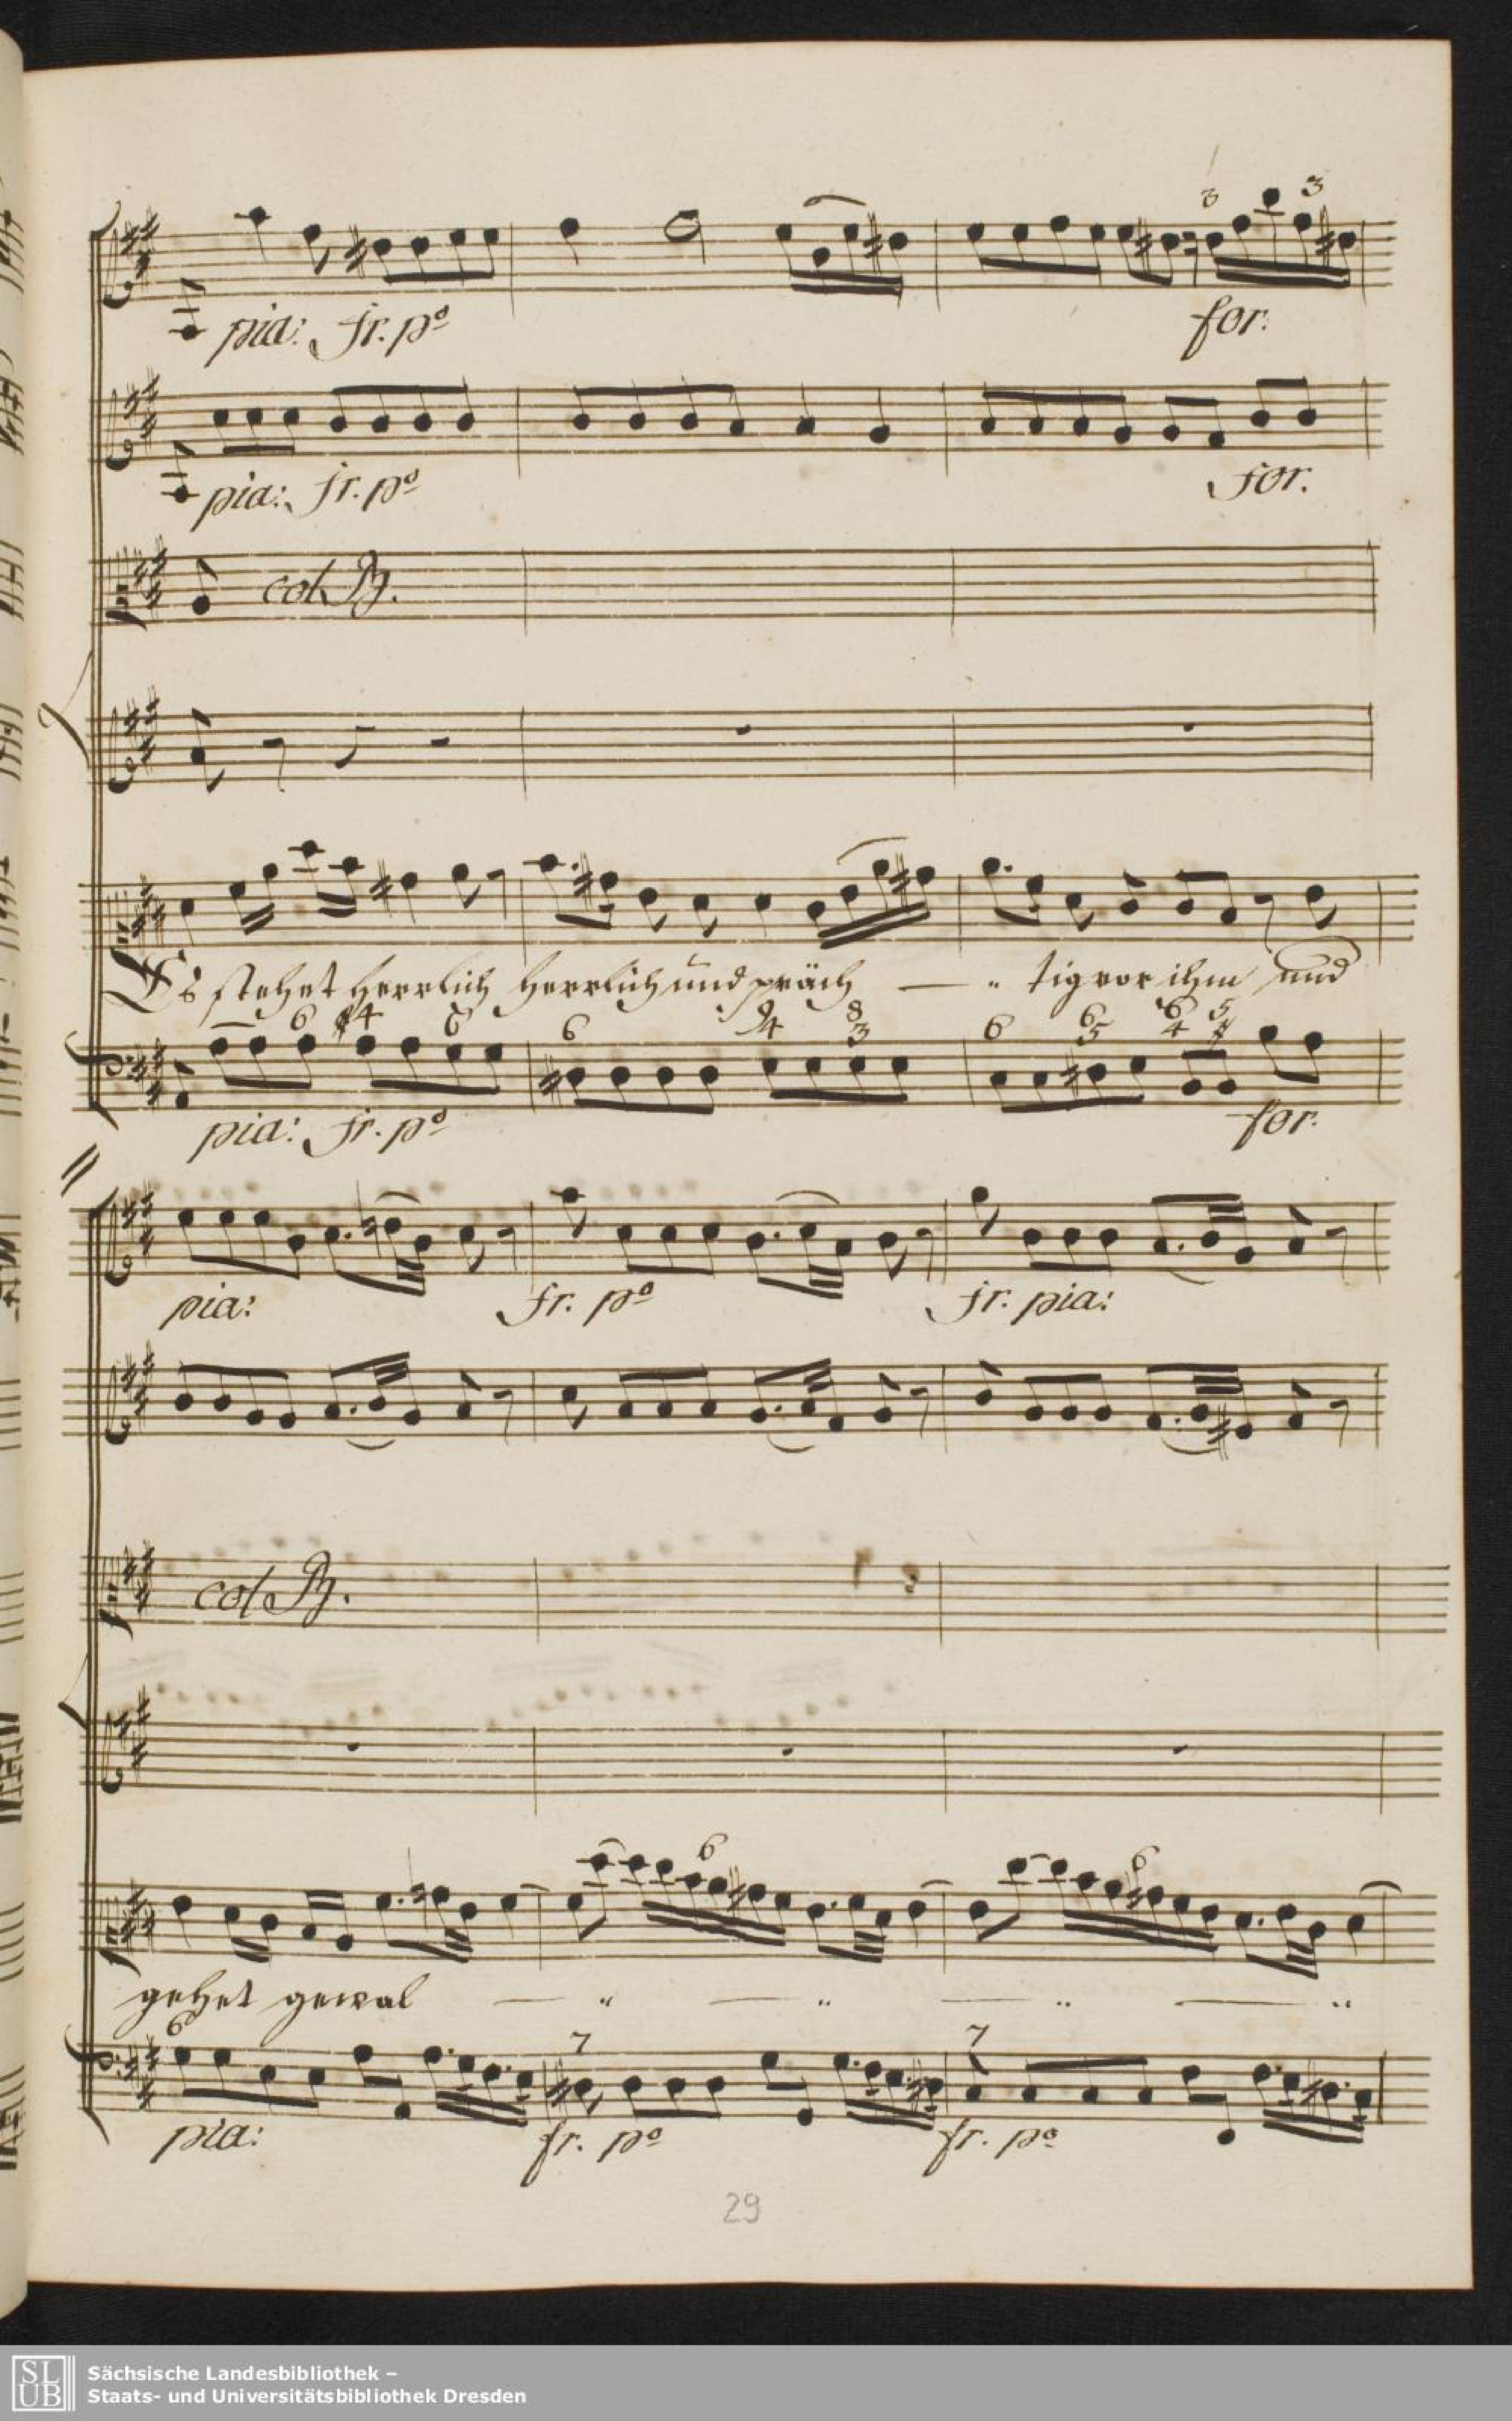 3 3
pia: fr. po for.
pia: fr. po for.
col B.
Es stehet herrlich herrlich und präch — " tig vor ihm und
6 4 6 6 9 4 8 3 6 6 5 6 4 5 #
pia: fr. po for.
pia: fr. po fr. pia:
col B.
6 6
gehet gewal — " — " — " — "
6 7 7
pia: fr. po fr. po
29
SLUB
Sächsische Landesbibliothek –
Staats- und Universitätsbibliothek Dresden